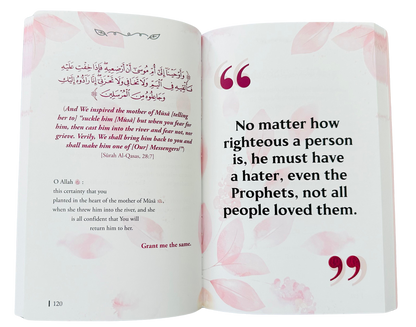 ﴿ وَأَوْحَيْنَا إِلَىٰ أُمِّ مُوسَىٰ أَنْ أَرْضِعِيهِ فَإِذَا خِفْتِ عَلَيْهِ
فَأَلْقِيهِ فِي الْيَمِّ وَلَا تَخَافِي وَلَا تَحْزَنِي إِنَّا رَادُّوهُ إِلَيْكِ
وَجَاعِلُوهُ مِنَ الْمُرْسَلِينَ ﴾
(And We inspired the mother of Mūsā [telling
her to] "suckle him [Mūsā] but when you fear for
him, then cast him into the river and fear not, nor
grieve. Verily, We shall bring him back to you and
shall make him one of (Our) Messengers!")
[Sūrah Al-Qasas, 28:7]
O Allah ﷻ :
this certainty that you
planted in the heart of the mother of Mūsā
when she threw him into the river, and she
is all confident that You will
return him to her.
Grant me the same.
120
“
No matter how
righteous a person
is, he must have
a hater, even the
Prophets, not all
people loved them.
”